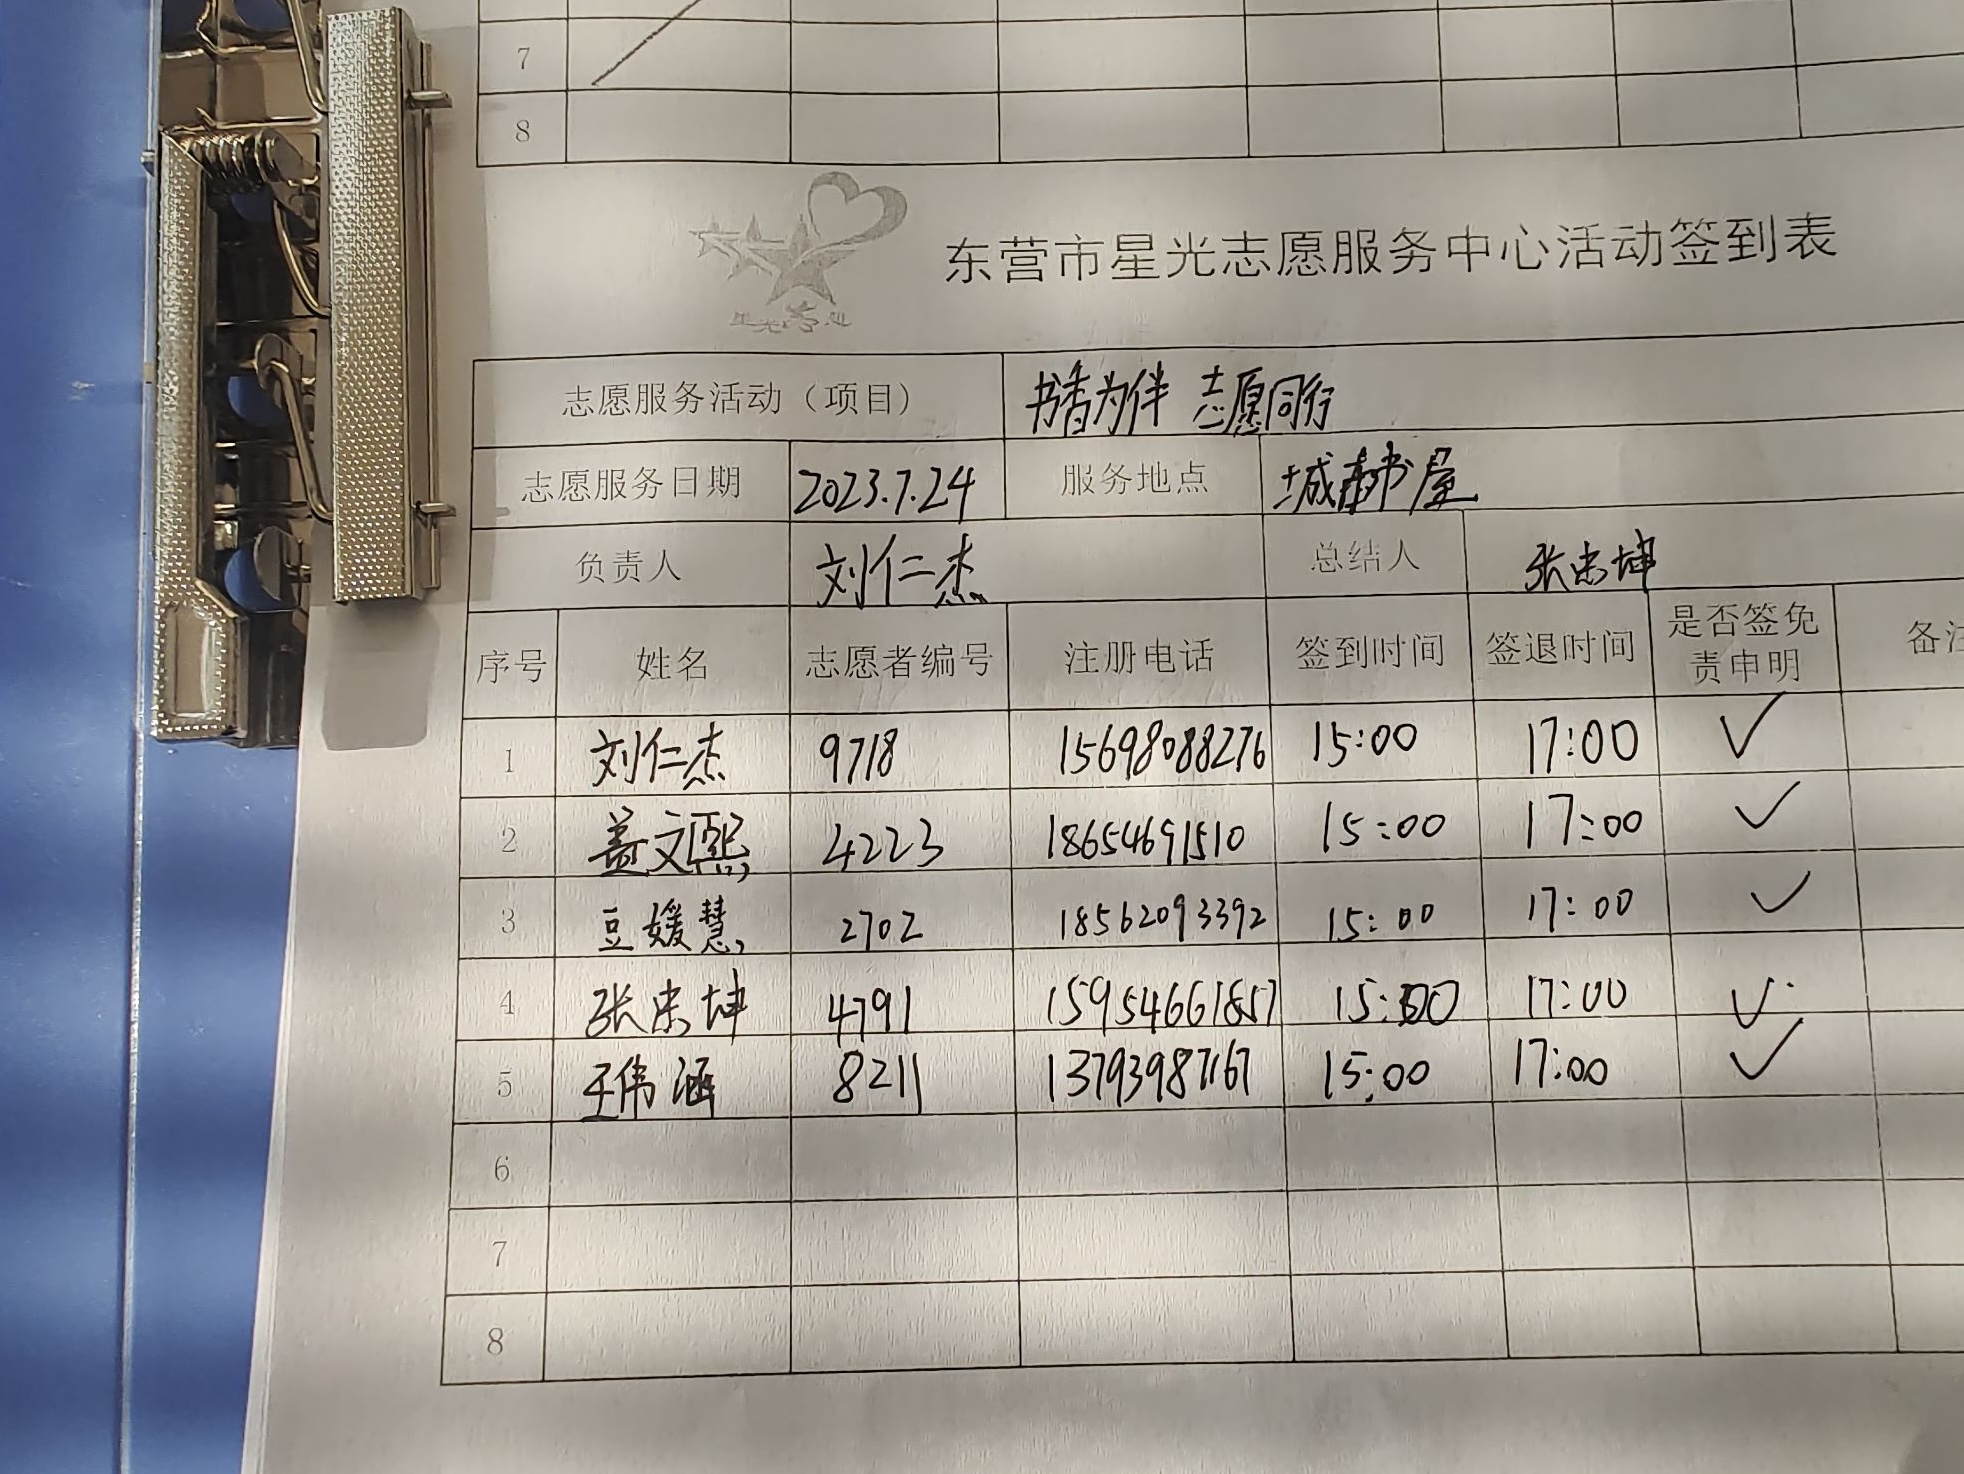 7
8
星光志愿
东营市星光志愿服务中心活动签到表
志愿服务活动（项目） 书香为伴 志愿同行
志愿服务日期 2023.7.24 服务地点 城市书屋
负责人 刘仁杰 总结人 张忠坤
序号 姓名 志愿者编号 注册电话 签到时间 签退时间 是否签免责申明 备注
1 刘仁杰 9718 15698088276 15:00 17:00 ✓
2 盖文熙 4223 18654691510 15:00 17:00 ✓
3 豆媛慧 2702 18562093392 15:00 17:00 ✓
4 张忠坤 4791 15:00 17:00 ✓
5 王伟涵 8211 13793987167 15:00 17:00 ✓
6
7
8